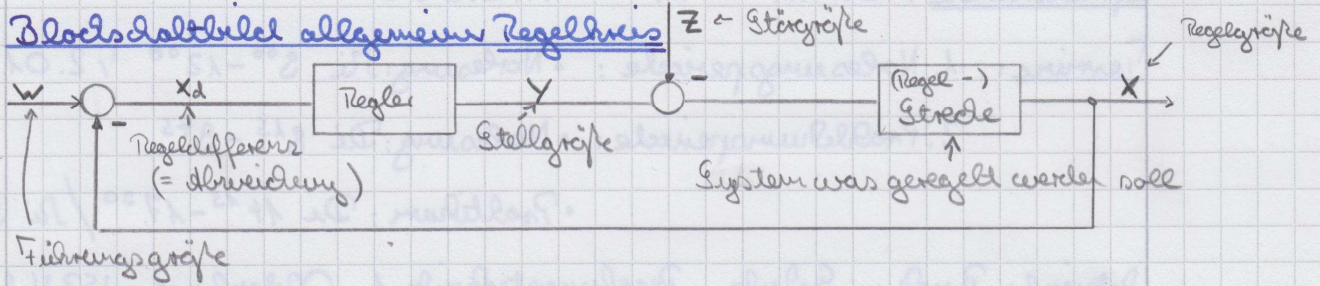 Blockschaltbild allgemeiner Regelkreis
Z ← Störgröße
Regelgröße
w
xd
Regler
y
(Regel-)
Strecke
x
-
-
Regeldifferenz
(= Abweichung)
Stellgröße
System was geregelt werden soll
Führungsgröße